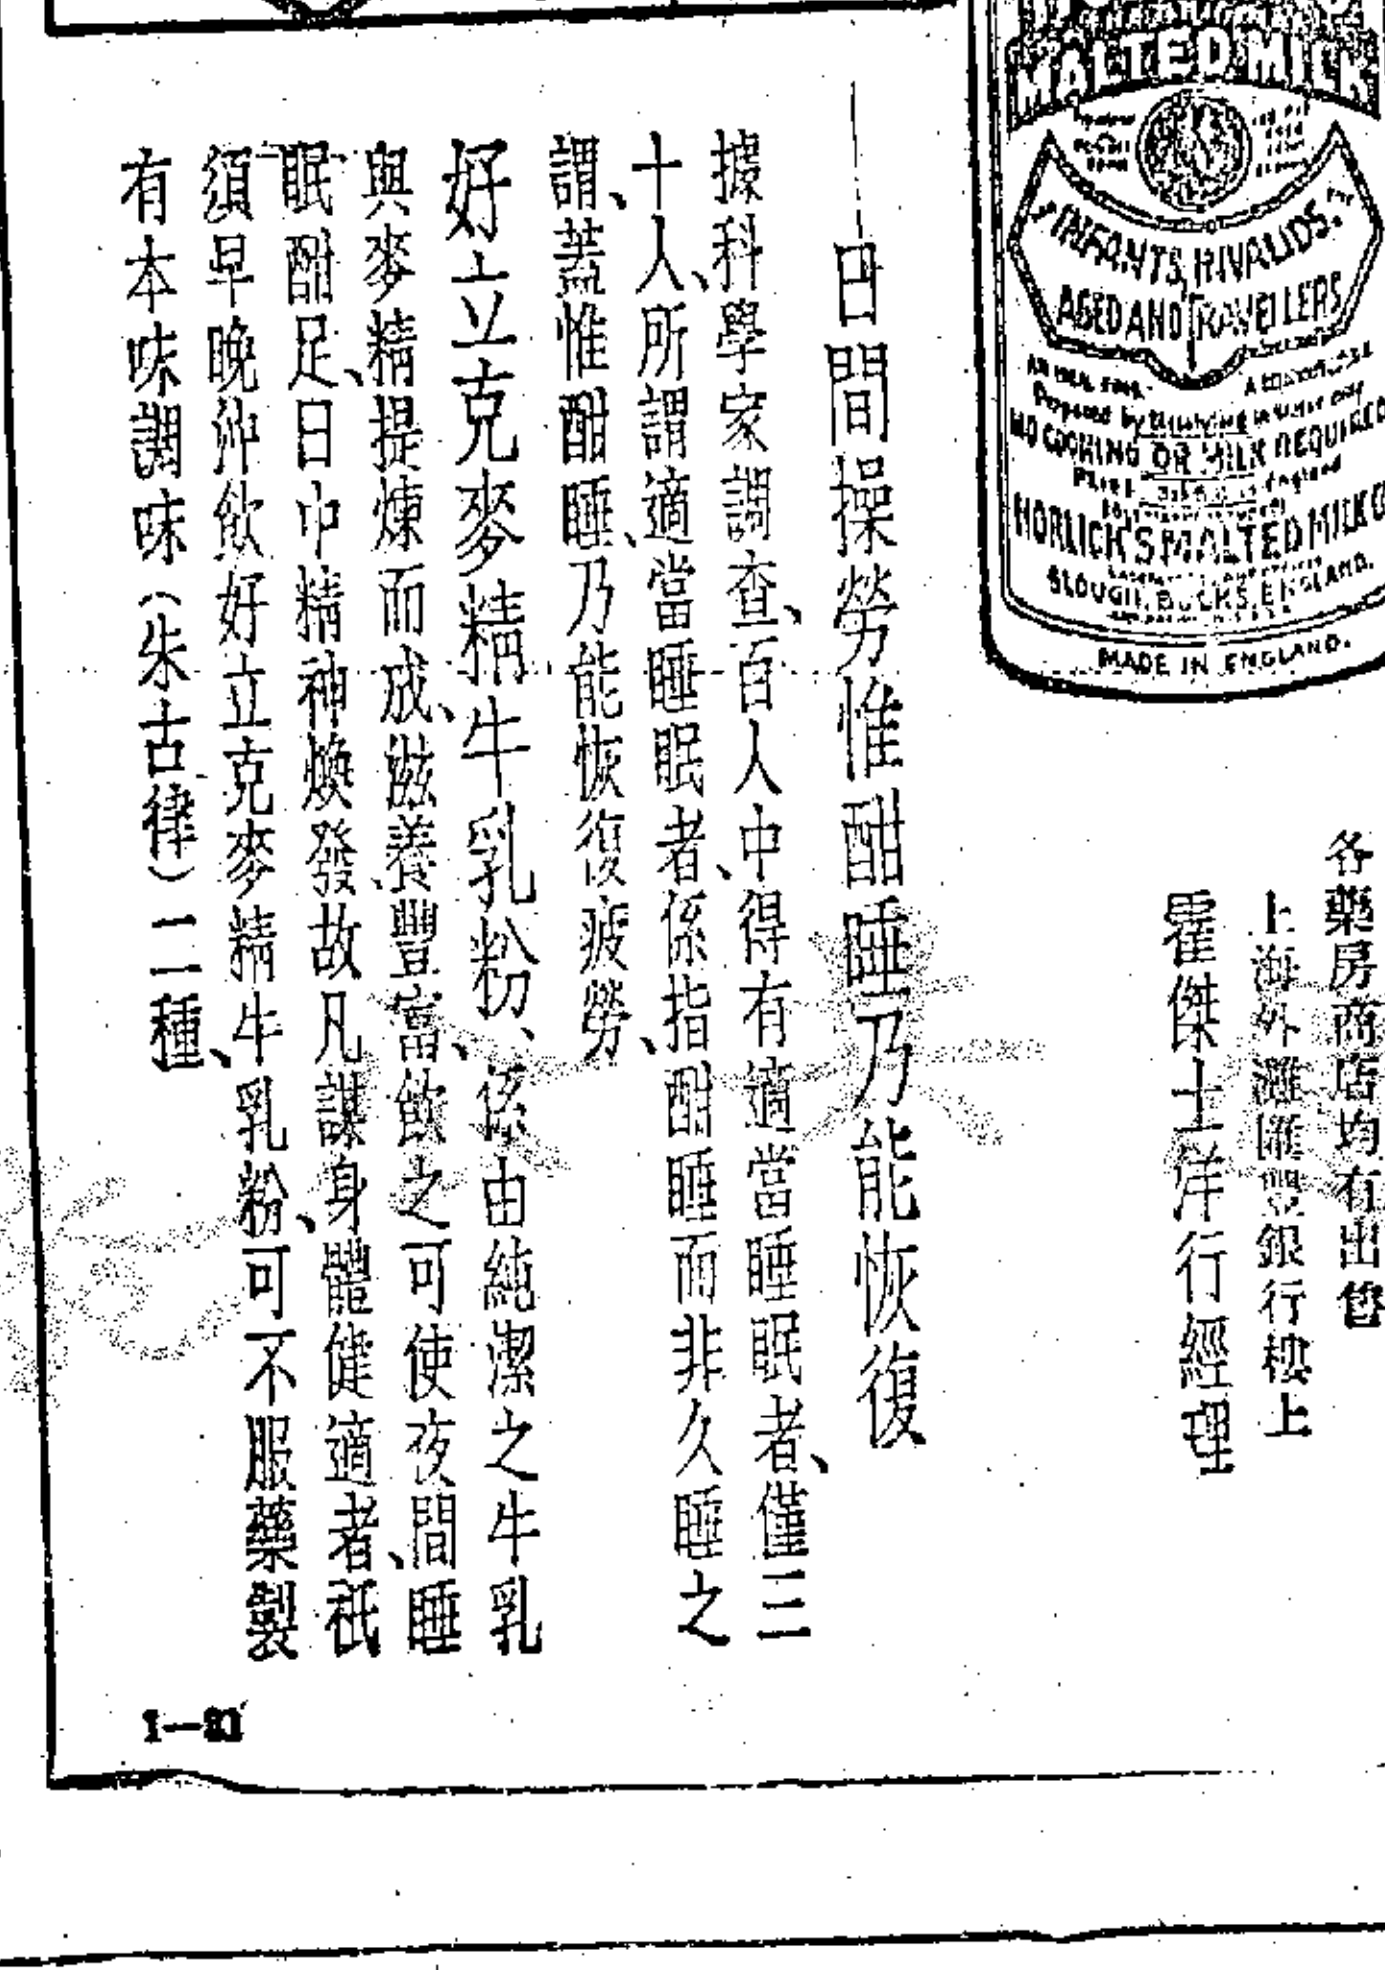 MALTED MILK
INFANTS, INVALIDS,
AGED AND TRAVELLERS
Prepared by Dissolving in Water only
NO COOKING OR MILK REQUIRED
HORLICK'S MALTED MILK CO
SLOUGH, BUCKS, ENGLAND.
MADE IN ENGLAND.
各藥房商店均有出售
上海外灘匯豐銀行樓上
霍傑士洋行經理
日間操勞惟酣睡乃能恢復
據科學家調查、百人中得有適當睡眠者、僅三
十人、所謂適當睡眠者、係指酣睡而非久睡之
謂、蓋惟酣睡、乃能恢復疲勞、
好立克麥精牛乳粉、係由純潔之牛乳
與麥精提煉而成、滋養豐富、飲之可使夜間睡
眠酣足、日中精神煥發故凡謀身體健適者、祇
須早晚沖飲好立克麥精牛乳粉、可不服藥製
有本味調味（朱古律）二種、